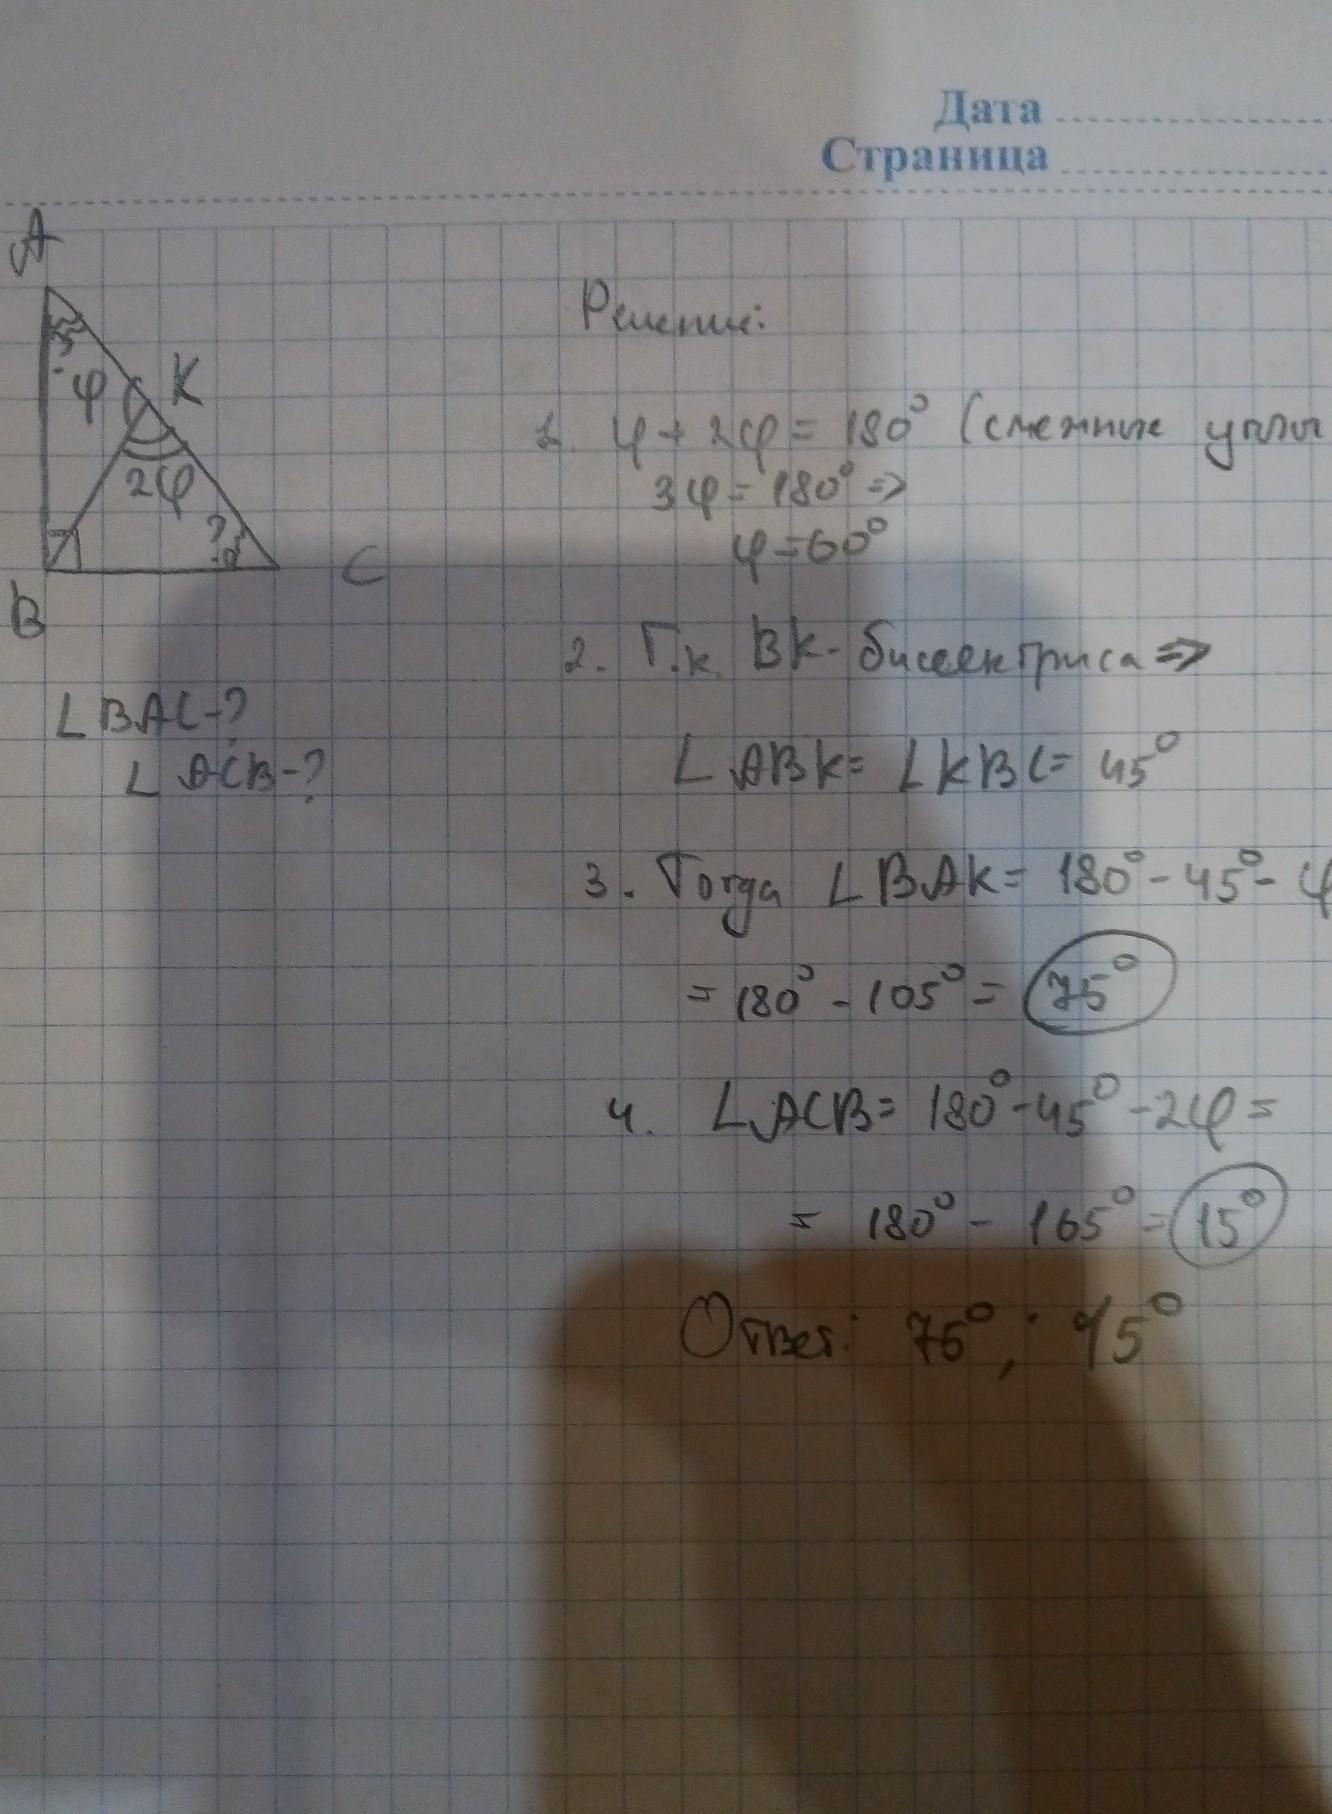 Дата
Страница
A
K
φ
2φ
?
C
B
∠BAC-?
∠ACB-?
Решение:
1. φ + 2φ = 180° (смежные углы
3φ = 180° =>
φ = 60°
2. Т.к BK - биссектриса =>
∠ABK = ∠KBC = 45°
3. Тогда ∠BAK = 180° - 45° - φ
= 180° - 105° = 75°
4. ∠ACB = 180° - 45° - 2φ =
= 180° - 165° = 15°
Ответ: 75°; 15°